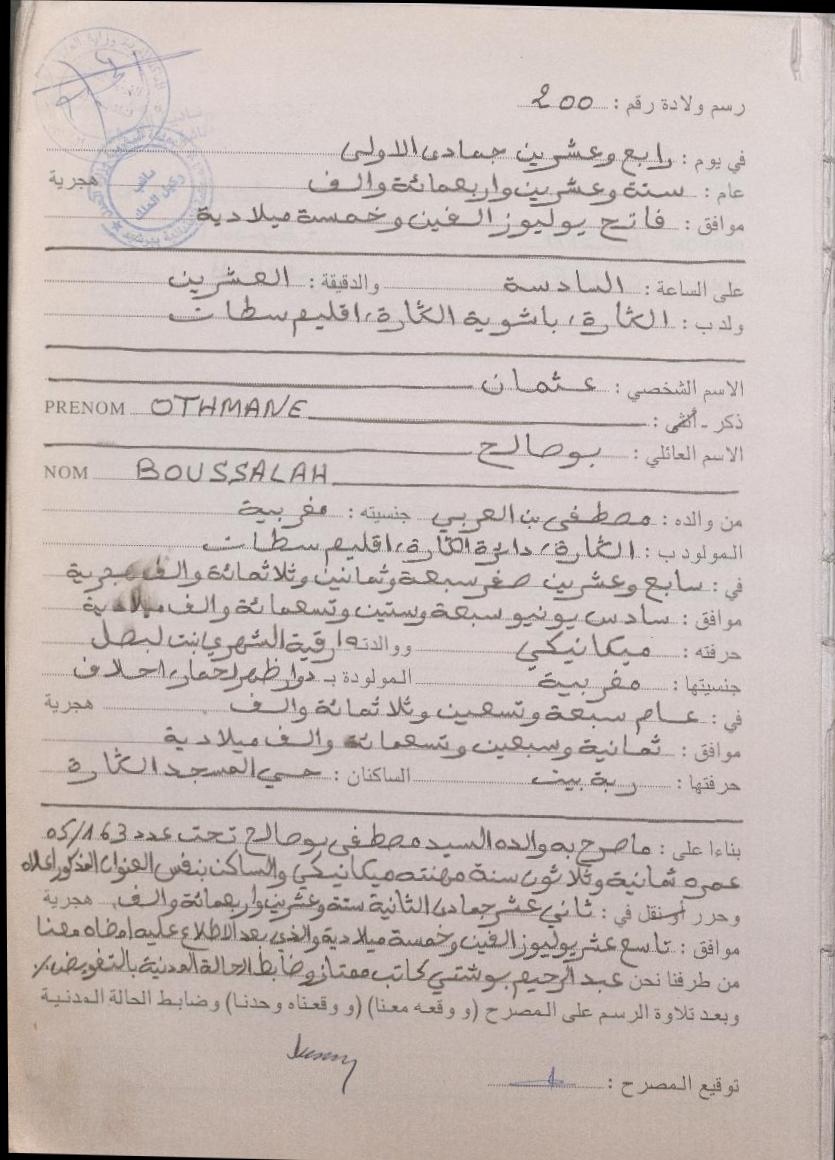 رسم ولادة رقم : 200
في يوم : رابع وعشرين جمادى الاولى
عام : ستة وعشرين واربعمائة والف هجرية
موافق : فاتح يوليوز الفين وخمسة ميلادية
نائب وكيل الملك
على الساعة : السادسة والدقيقة : العشرين
ولد ب : الگارة، باشوية الگارة، اقليم سطات
الاسم الشخصي : عثمان
ذكر - أنثى :
PRENOM OTHMANE
الاسم العائلي : بوصالح
NOM BOUSSALAH
من والده : مصطفى بن العربي جنسيته : مغربية
المولود ب : الگارة، دائرة الگارة، اقليم سطات
في : سابع وعشرين صفر سبعة وثمانين وثلاثمائة والف هجرية
موافق : سادس يونيو سبعة وستين وتسعمائة والف ميلادية
حرفته : ميكانيكي ووالدته رقية الشهري بنت لبصل
جنسيتها : مغربية المولودة بـ دوار ظهر لحمار، احلاف
في : عام سبعة وتسعين وثلاثمائة والف هجرية
موافق : ثمانية وسبعين وتسعمائة والف ميلادية
حرفتها : ربة بيت الساكنان : حي المسجد الگارة
بناءا على : ماصرح به والده السيد مصطفى بوصالح تحت عدد 05/163
عمره ثمانية وثلاثون سنة مهنته ميكانيكي والساكن بنفس العنوان المذكور اعلاه
وحرر أو نقل في : ثاني عشر جمادى الثانية ستة وعشرين واربعمائة والف هجرية
موافق : تاسع عشر يوليوز الفين وخمسة ميلادية والذي بعد الاطلاع عليه امضاه معنا
من طرفنا نحن عبد الرحيم بوشتي كاتب ممتاز وضابط الحالة المدنية بالتفويض ./.
وبعد تلاوة الرسم على المصرح (و وقعه معنا) (و وقعناه وحدنا) وضابط الحالة المدنية
توقيع المصرح :